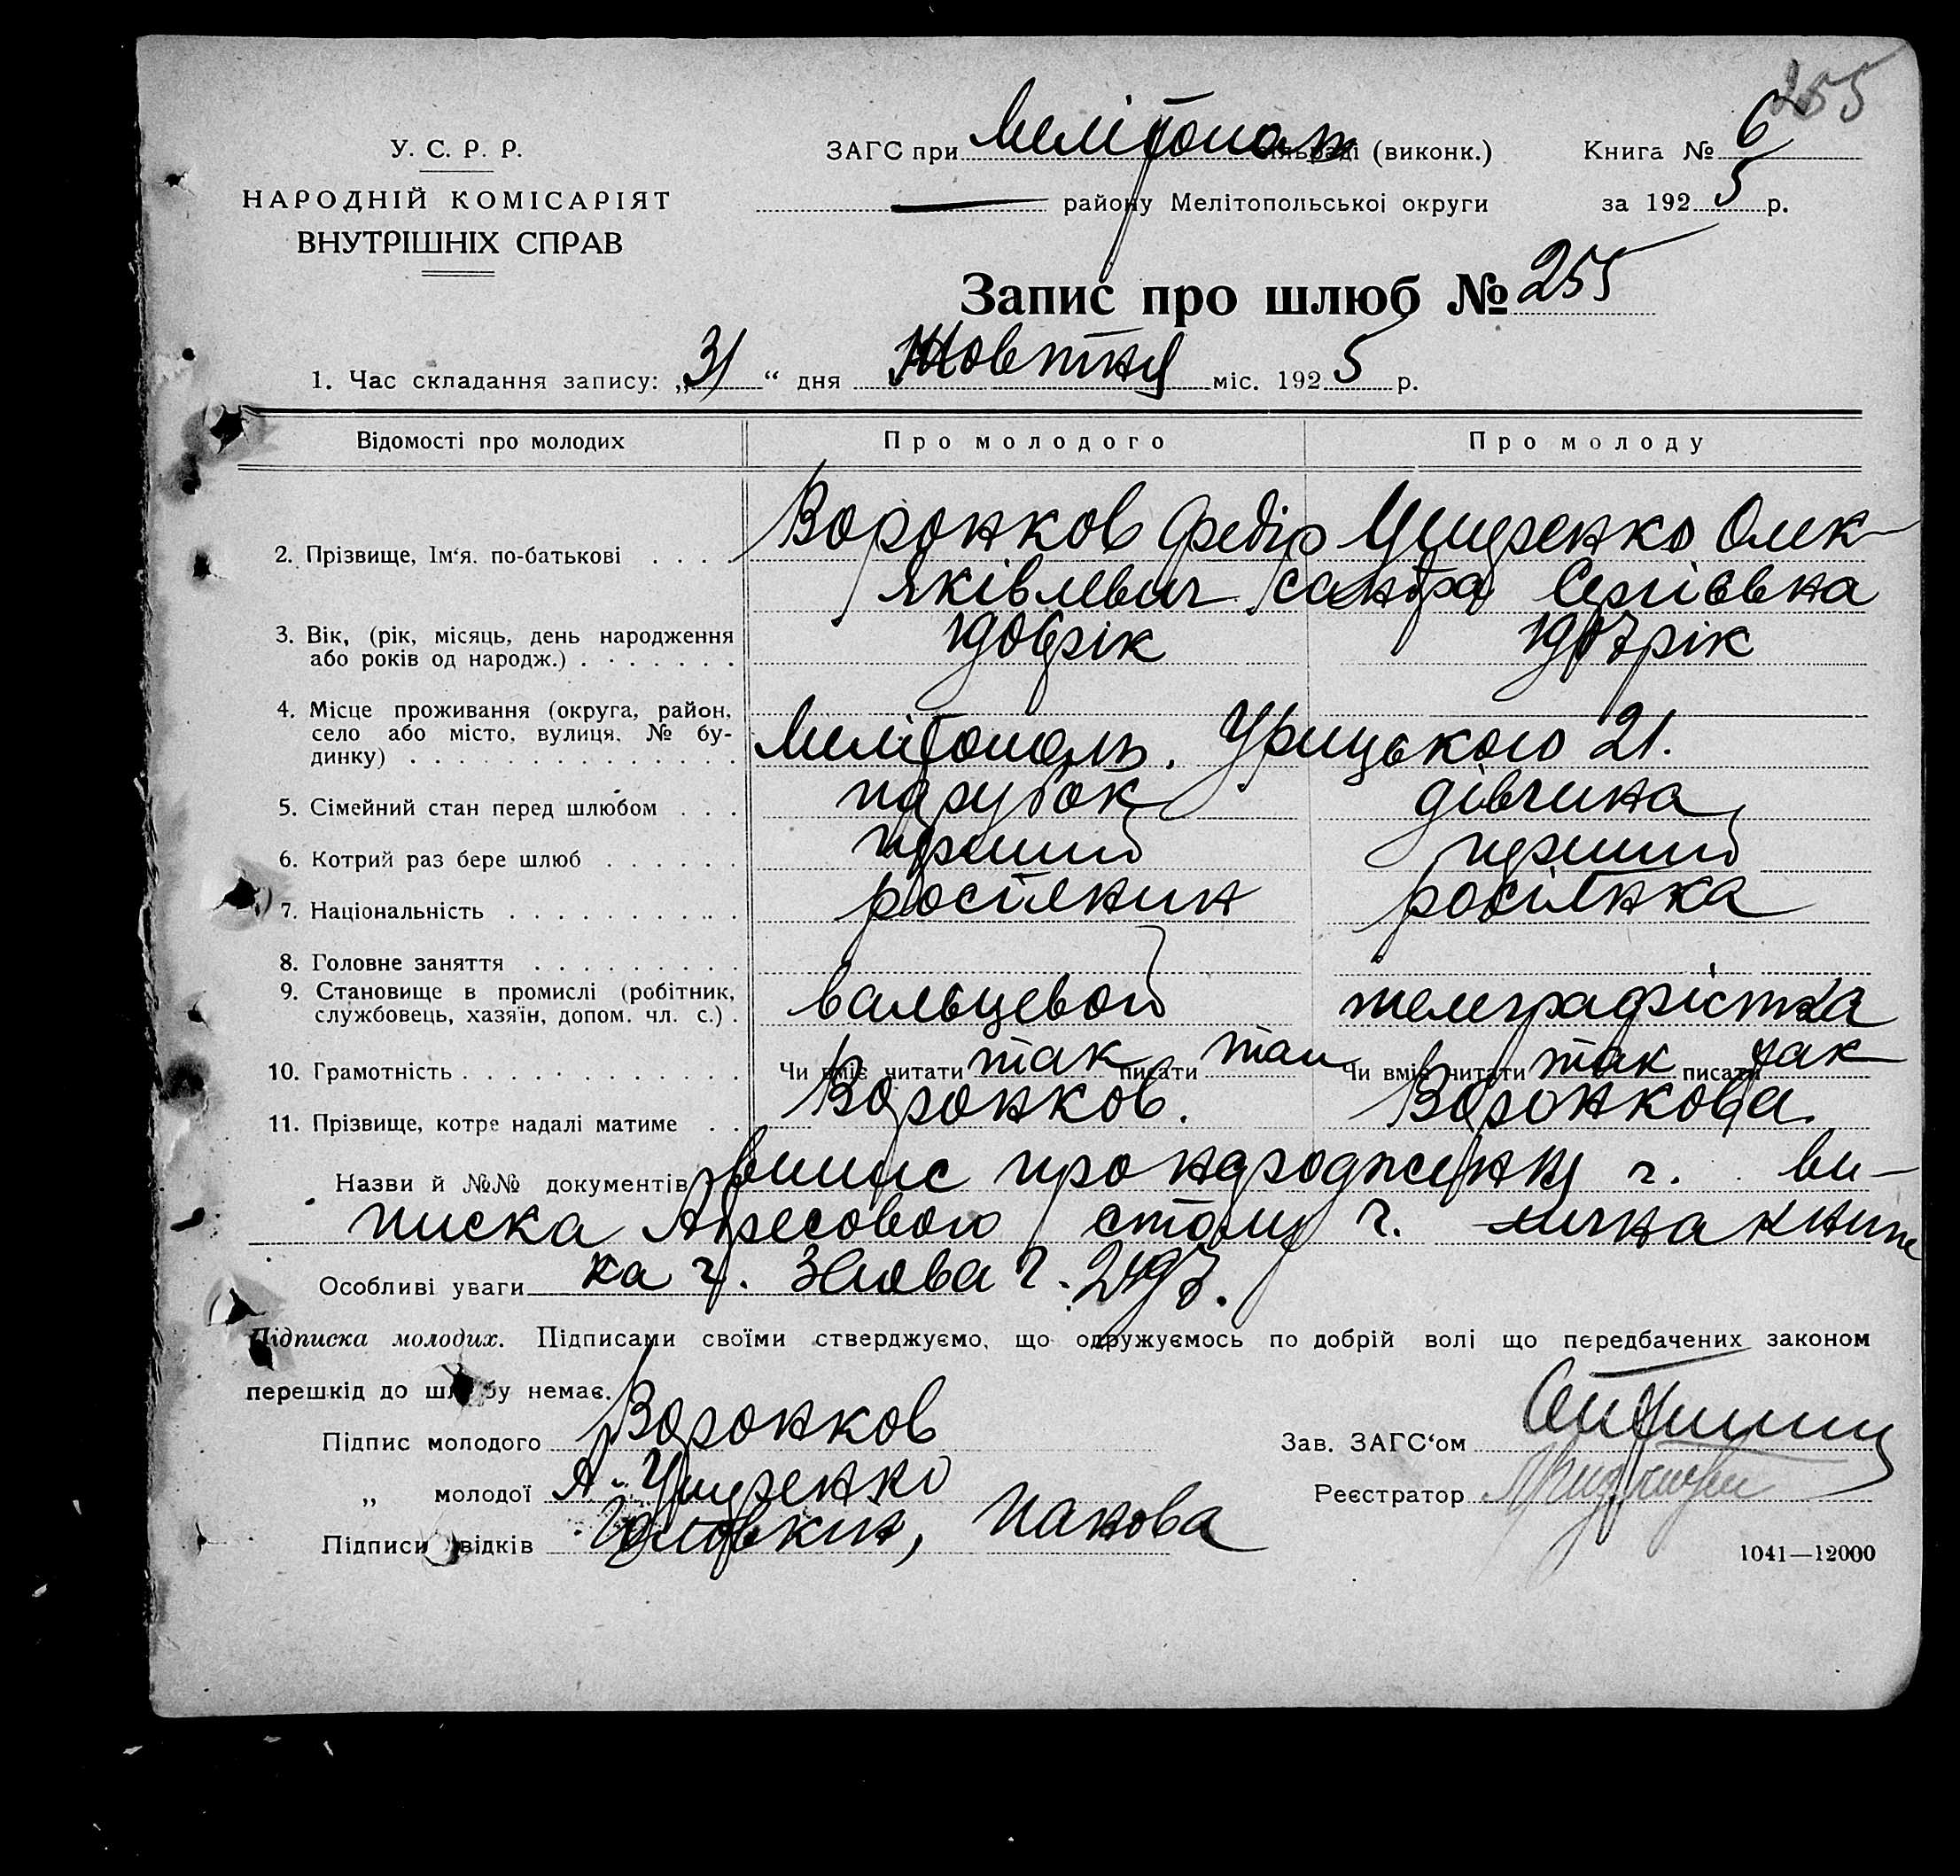 255
У. С. Р. Р.
НАРОДНІЙ КОМІСАРІЯТ
ВНУТРІШНІХ СПРАВ
ЗАГС при Мелітополь (виконк.)
Книга № 6
району Мелітопольської округи
за 192 5 р.
Запис про шлюб № 255
1. Час складання запису: „31“ дня Жовтня міс. 192 5 р.
Відомості про молодих
Про молодого
Про молоду
2. Прізвище, Ім‘я. по-батькові . . . . Воронков Федір Яківлевич
Олександра Сергіївна
3. Вік, (рік, місяць, день народження
або років од народж.) . . . . . . . 1906 рік
1907 рік
4. Місце проживання (округа, район,
село або місто, вулиця, № бу-
динку) . . . . . . . . . . . . . . Мелітополь. Урицького 21.
5. Сімейний стан перед шлюбом . . . парубок
дівчина
6. Котрий раз бере шлюб . . . . . . перший
перший
7. Національність . . . . . . . . . . росіянин
росіянка
8. Головне заняття . . . . . . . . .
9. Становище в промислі (робітник,
службовець, хазяїн, допом. чл. с.) . вальцевой
телеграфістка
10. Грамотність . . . . . . . . . . . . Чи вміє читати так писати так
Чи вміє читати так писати так
11. Прізвище, котре надалі матиме . . Воронков.
Воронкова.
Назви й №№ документів випис про народження ч. ви-
писка Адресового столу ч. лична книж
Особливі уваги ка ч. Злюва ч. 2497.
Підписка молодих. Підписами своїми стверджуємо, що одружуємось по добрій волі що передбачених законом
перешкід до шлюбу немає.
Підпис молодого Воронков
Зав. ЗАГС‘ом
„ молодої А.
Реєстратор
Підписи свідків Панова
1041—12000